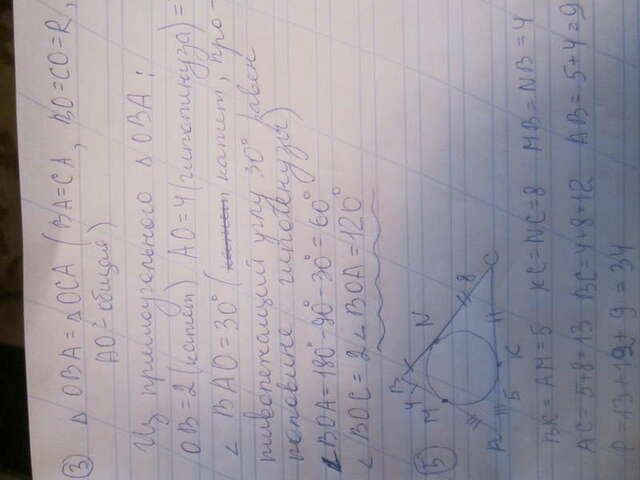 ③ △ OBA = △ OCA (BA=CA, BO=CO=R,
AO - общая)
Из прямоугольного △ OBA :
OB=2 (катет) AO=4 (гипотинуза) =
∠ BAO = 30° (катет, про-
тиволежащий углу 30° равен
половине гипотенузы)
∠BOA=180°-90°-30°=60°
∠ BOC = 2∠BOA=120°
⑤
B
4
M
N
8
A
5
K
C
BK=AM=5 KC=NC=8 MB=NB=4
AC=5+8=13 BC=4+8=12 AB=5+4=9
P=13+12+9=34